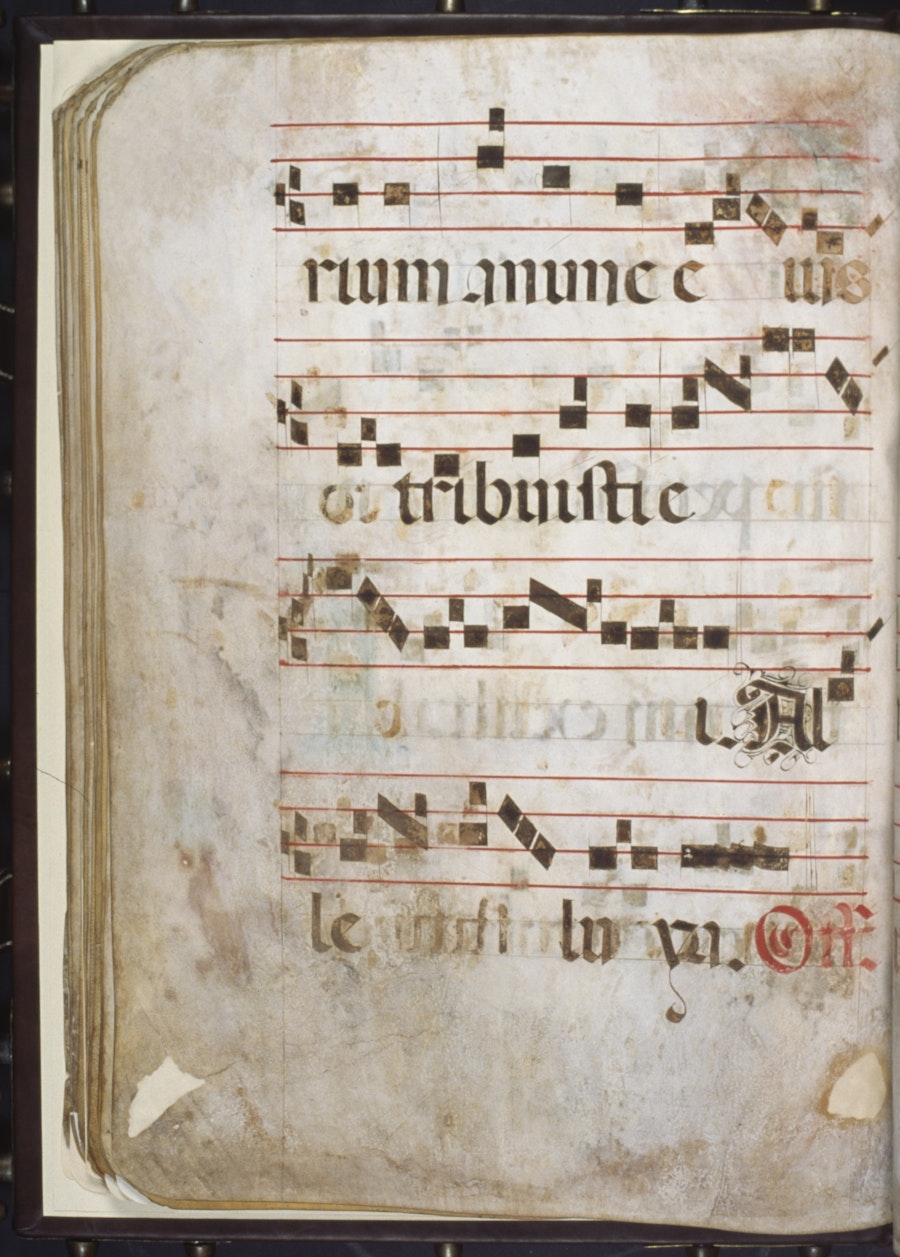 rium anime e ius
tribuisti e
i. Al
le lu ya. Off.